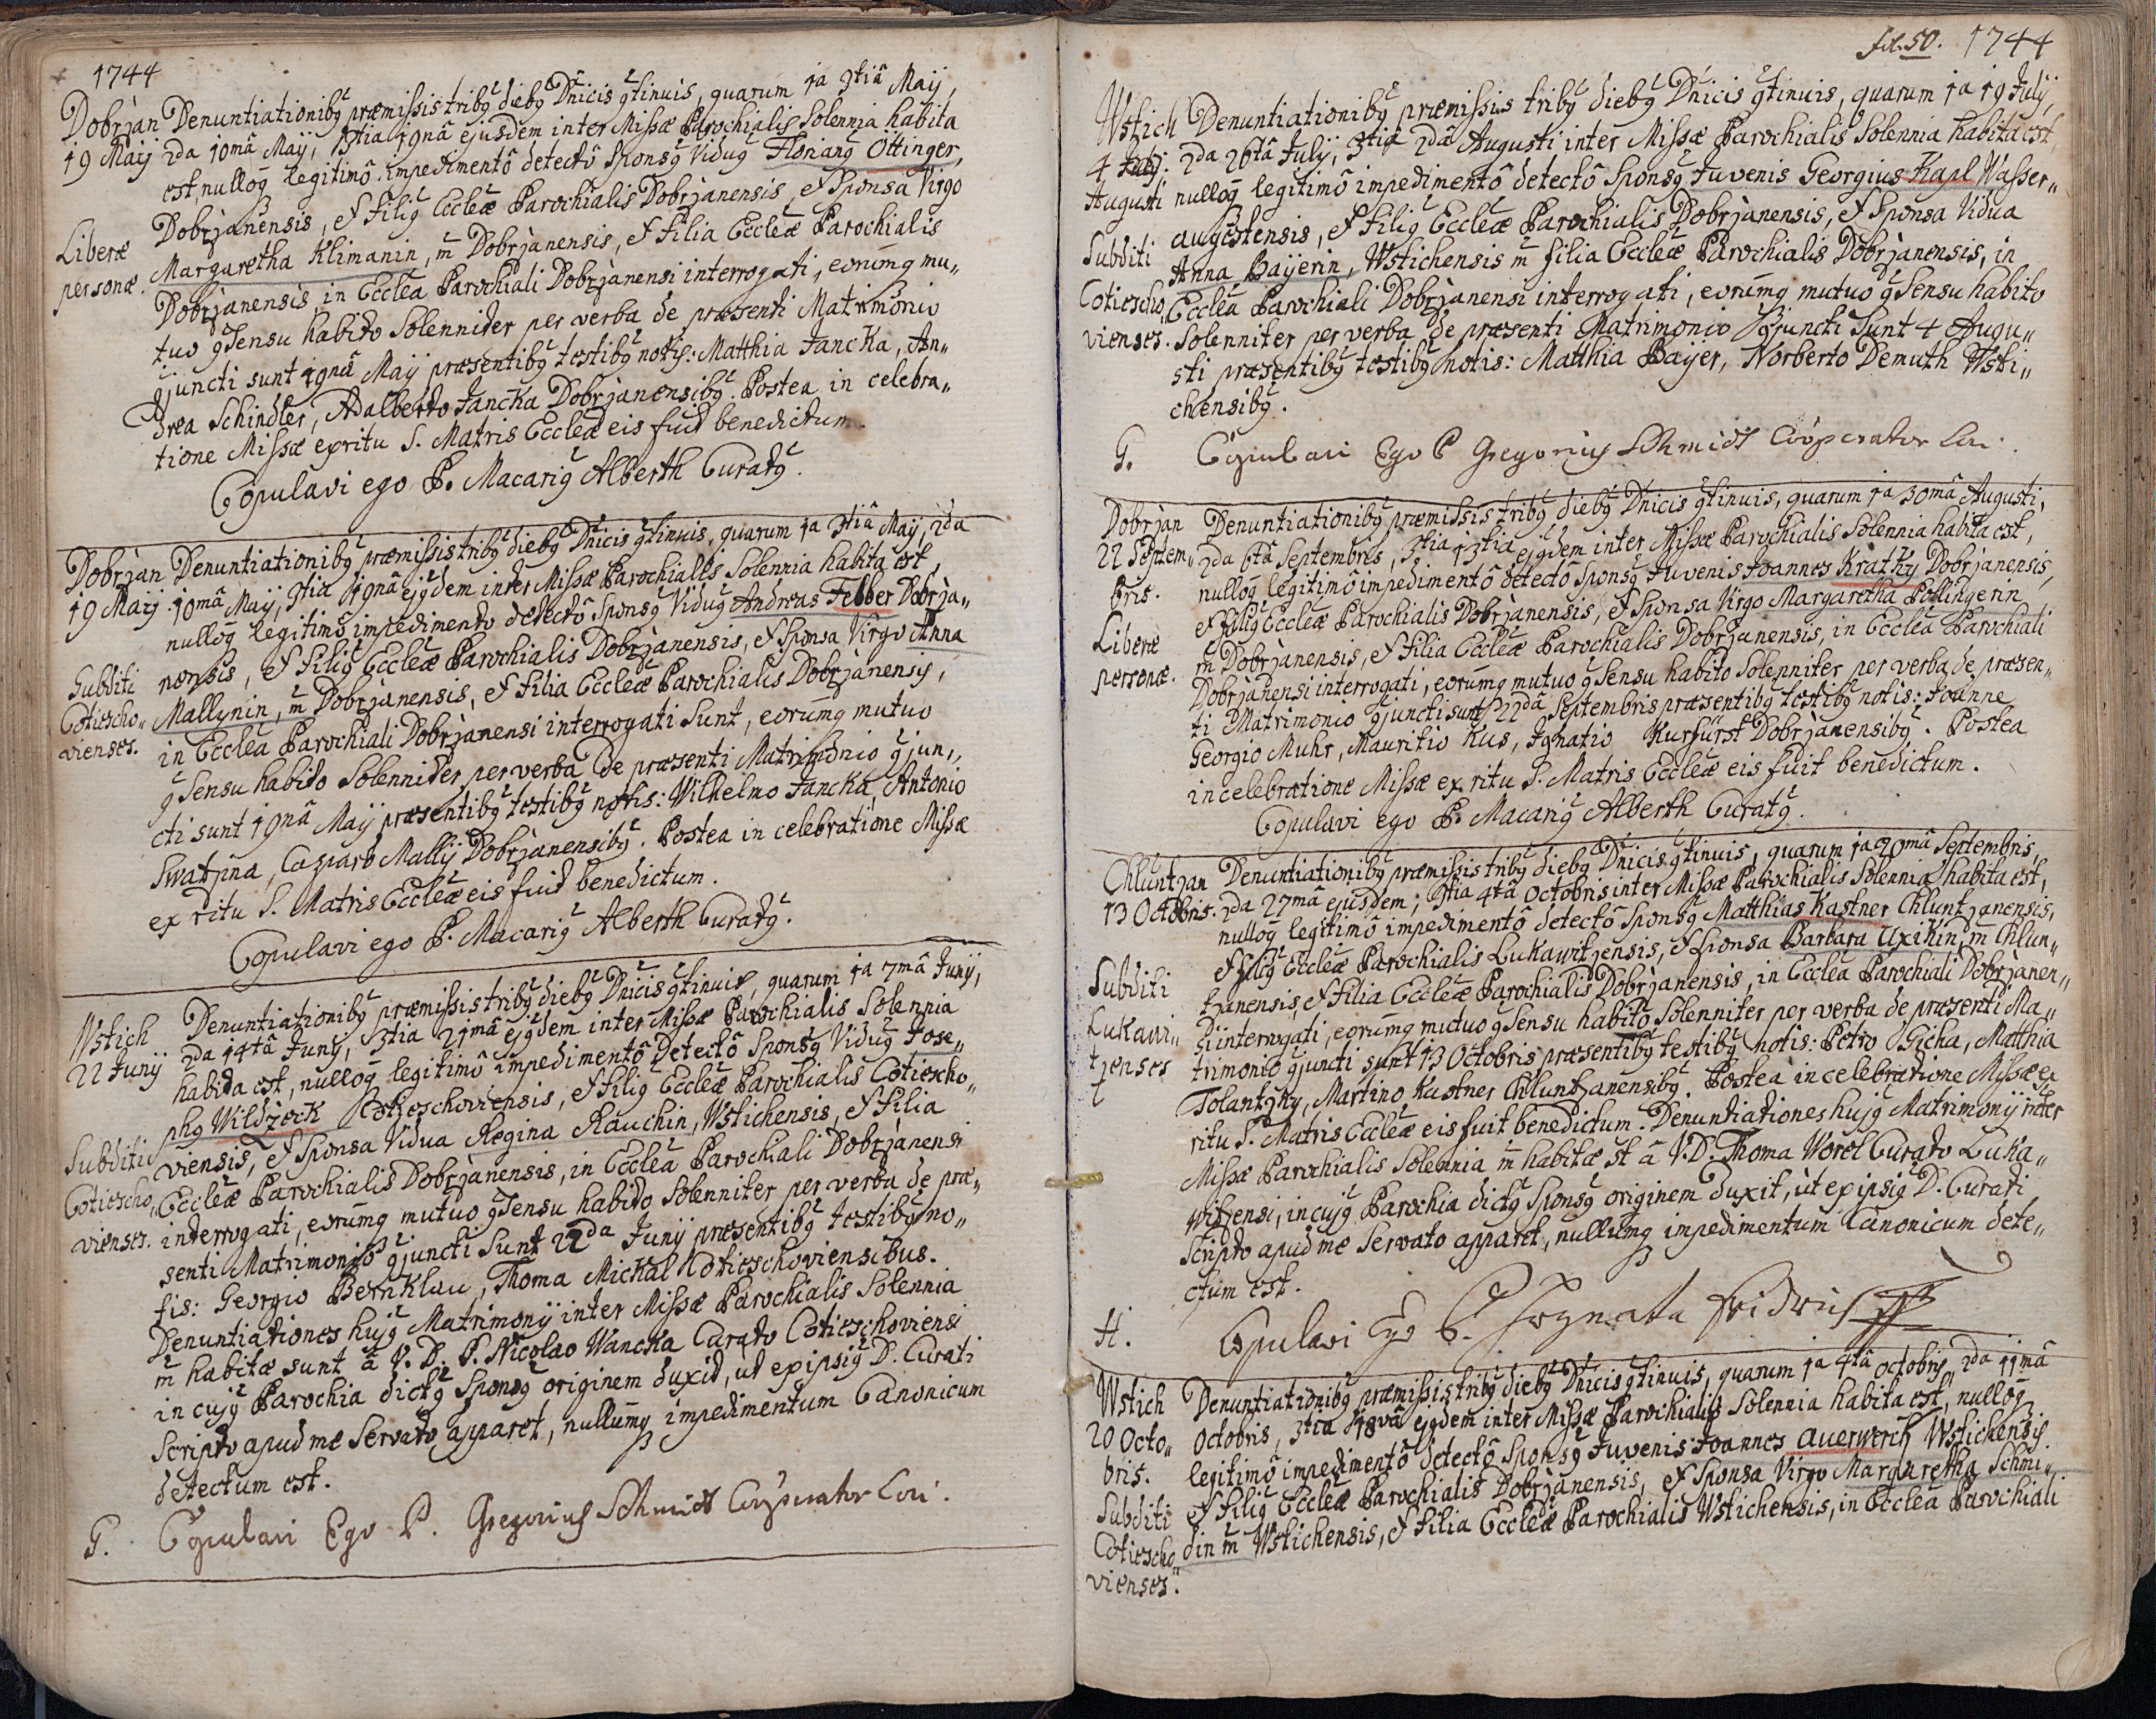 1744
Dobrzan Denuntiationibg præmissis tribg diebg Dnicis gtinuis, quarum 1a 3tiâ Maij,
19 Maij 2da 10mâ Maij, 3tia 19nâ ejusdem inter Missæ Parochialis Solennia habita
est, nulloq legitimô impedimentô detectô Sponsg Vidug Floriang Öttinger,
Dobrzanensis, et Filig Eccleæ Parochialis Dobrzanensis, et Sponsa Virgo
Liberæ Margaretha Klimanin, m̄ Dobrzanensis, et Filia Eccleæ Parochialis
personæ. Dobrzanensis, in Ecclea Parochiali Dobrzanensi interrogati, eorumq mu„
tuo gsensu habito Solenniter per verba de præsenti Matrimonio
gjuncti sunt 19nâ Maij præsentibg testibg notis: Matthia Jancka, An„
drea Schindler, Adalberto Jancka Dobrzanensibg. Postea in celebra„
tione Missæ ex ritu S. Matris Eccleæ eis fuit benedictum.
Copulavi ego P. Macarig Alberth Curatg.
Dobrzan Denuntiationibg præmissis tribg diebg Dnicis gtinuis, quarum 1a 3tiâ Maij, 2da
19 Maij 10mâ Maij, 3tia 19nâ ejgdem inter Missæ Parochialis Solennia habita est,
nulloq legitimô impedimento detectô Sponsg Vidug Andreas Felber Dobrza„
Subditi nensis, et Filig Eccleæ Parochialis Dobrzanensis, et Sponsa Virgo Anna
Cotiescho„ Mallynin, m̄ Dobrzanensis, et Filia Eccleæ Parochialis Dobrzanensis,
vienses. in Ecclea Parochiali Dobrzanensi interrogati Sunt, eorumq mutuo
gsensu habito Solenniter per verba de præsenti Matrimonio gjun„
cti sunt 19nâ Maij præsentibg testibg notis: Wilhelmo Jancka, Antonio
Swatzina, Casparo Mallij Dobrzanensibg. Postea in celebratione Missæ
ex ritu S. Matris Eccleæ eis fuit benedictum.
Copulavi ego P. Macarig Alberth Curatg.
Wstich Denuntiationibg præmissis tribg diebg Dnicis gtinuis, quarum 1a 7mâ Junij,
22 Junij 2da 14tâ Junij, 3tia 21mâ ejgdem inter Missæ Parochialis Solennia
habita est, nulloq legitimô impedimentô detectô Sponsg Vidug Jose„
phg Wildzeck Cotieschoviensis, et Filig Eccleæ Parochialis Cotiescho„
Subditi viensis, et Sponsa Vidua Regina Rauchin, Wstichensis, et Filia
Cotiescho„ Eccleæ Parochialis Dobrzanensis, in Ecclea Parochiali Dobrzanensi
vienses. interrogati, eorumq mutuo gsensu habito Solenniter per verba de præ„
senti Matrimonio gjuncti Sunt 22da Junij præsentibg testibg no„
tis: Georgio Bernklau, Thoma Michal Cotieschoviensibus.
Denuntiationes hujg Matrimonij inter Missæ Parochialis Solennia
m̄ habitæ sunt â V. D. P. Nicolao Wancka Curato Cotieschoviensi
in cujg Parochia dictg Sponsg originem duxit, ut ex ipsig D. Curati
Scripto apud me Servato apparet, nullumq impedimentum Canonicum
detectum est.
G. Copulavi Ego P. Gregorius Schmidt Cooperator Loci.
fol. 50. 1744
Wstich Denuntiationibg præmissis tribg diebg Dnicis gtinuis, quarum 1a 19 Julij,
4 Julij: 2da 26tâ Julij, 3tia 2dâ Augusti inter Missæ Parochialis Solennia habita est,
Augusti nulloq legitimô impedimentô detectô Sponsg Juvenis Georgius Kapl Wasser„
augestensis, et Filig Eccleæ Parochialis Dobrzanensis, et Sponsa Vidua
Subditi Anna Baijerin, Wstichensis m̄ filia Eccleæ Parochialis Dobrzanensis, in
Cotiescho„ Ecclea Parochiali Dobrzanensi interrogati, eorumq mutuo gsensu habito
vienses. Solenniter per verba de præsenti Matrimonio gjuncti Sunt 4 Augu„
sti præsentibg testibg notis: Matthia Baijer, Norberto Demuth Wsti„
chensibg.
G. Copulavi Ego P Gregorius Schmidt Cooperator Loci.
Dobrzan Denuntiationibg præmissis tribg diebg Dnicis gtinuis, quarum 1a 30mâ Augusti,
22 Septem„ 2da 6tâ Septembris, 3tia 13tia ejgdem inter Missæ Parochialis Solennia habita est,
bris. nulloq legitimô impedimentô detectô Sponsg Juvenis Joannes Kratky Dobrzanensis,
et Filig Eccleæ Parochialis Dobrzanensis, et Sponsa Virgo Margaretha Pollingerin
Liberæ m̄ Dobrzanensis, et Filia Eccleæ Parochialis Dobrzanensis, in Ecclea Parochiali
personæ. Dobrzanensi interrogati, eorumq mutuo gsensu habito Solenniter per verba de præsen„
ti Matrimonio gjuncti sunt 22dâ Septembris præsentibg testibg notis: Joanne
Georgio Muhr, Mauritio Kus, Ignatio Kurfürst Dobrzanensibg. Postea
in celebratione Missæ ex ritu S. Matris Eccleæ eis fuit benedictum.
Copulavi ego P. Macarig Alberth Curatg.
Chluntzan Denuntiationibg præmissis tribg diebg Dnicis gtinuis, quarum 1a 20mâ Septembris,
13 Octobris. 2da 27mâ ejusdem, 3tia 4tâ Octobris inter Missæ Parochialis Solennia habita est,
nulloq legitimô impedimentô detectô Sponsg Matthias Kastner Chluntzanensis,
et Filig Eccleæ Parochialis Lukawitzensis, et Sponsa Barbara Uxikin, m̄ Chlun„
Subditi tzanensis, et Filia Eccleæ Parochialis Dobrzanensis, in Ecclea Parochiali Dobrzanen„
Lukawi„ si interrogati, eorumq mutuo gsensu habitô Solenniter per verba de præsenti Ma„
tzenses trimonio gjuncti sunt 13 Octobris præsentibg testibg notis: Petro Gicha, Matthia
Tolantzky, Martino Kastner Chluntzanensibg. Postea in celebratione Missæ ex
ritu S. Matris Eccleæ eis fuit benedictum. Denuntiationes hujg Matrimonij inter
Missæ Parochialis Solennia m̄ habitæ st â V. D. Thoma Worel Curato Luka„
witzensi, in cujg Parochia dictg Sponsg originem duxit, ut ex ipsig D. Curati
Scripto apud me Servato apparet, nullumq impedimentum Canonicum dete„
ctum est.
H. Copulavi Ego P.
Wstich Denuntiationibg præmissis tribg diebg Dnicis gtinuis, quarum 1a 4tâ Octobris, 2da 11mâ
20 Octo„ Octobris, 3tia 18vâ ejgdem inter Missæ Parochialis Solennia habita est, nulloq
bris. legitimô impedimentô detectô Sponsg Juvenis Joannes Auerwerch Wstichensis
Subditi et Filig Eccleæ Parochialis Dobrzanensis, et Sponsa Virgo Margaretha Schmi„
Cotiescho„ din m̄ Wstichensis, et Filia Eccleæ Parochialis Wstichensis, in Ecclea Parochiali
vienses.